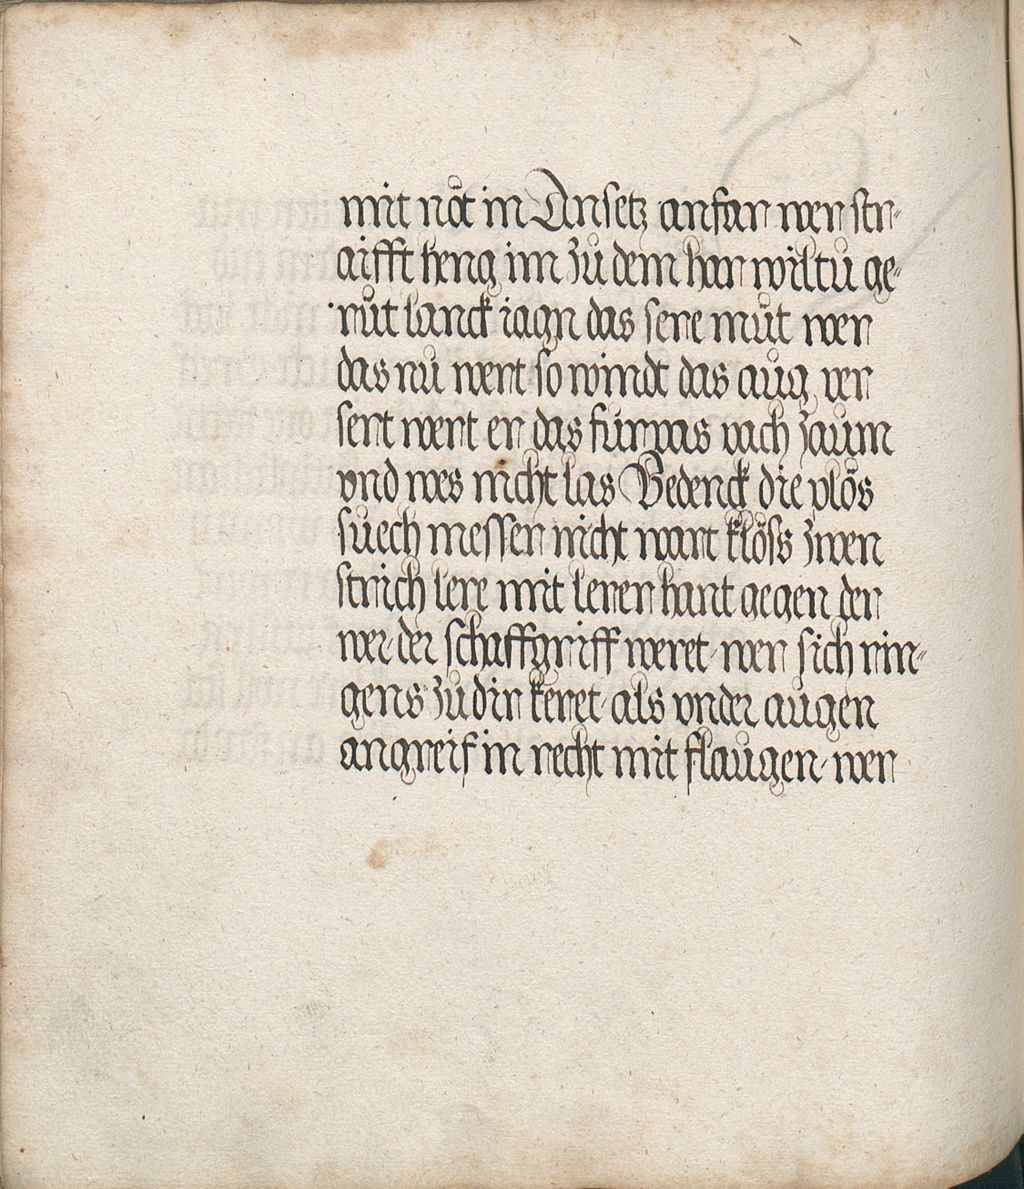 mit nöt in Ansetz anfar wer str-
aifft heng im zů dem har wiltů ge-
růt lanck iagn das sere můt wer
das nů wert so windt das aůg ver
sert wert er das fürpas vach zaům
vnd wes nicht las Bedenck die plös
sůech messer nicht wart klöss zwen
strich lere mit lerer hant gegen der
wer der schaffgriff weret wer sich rin-
gens zů dir keret als vnder aůgen
angreif in recht mit flaůgen wer